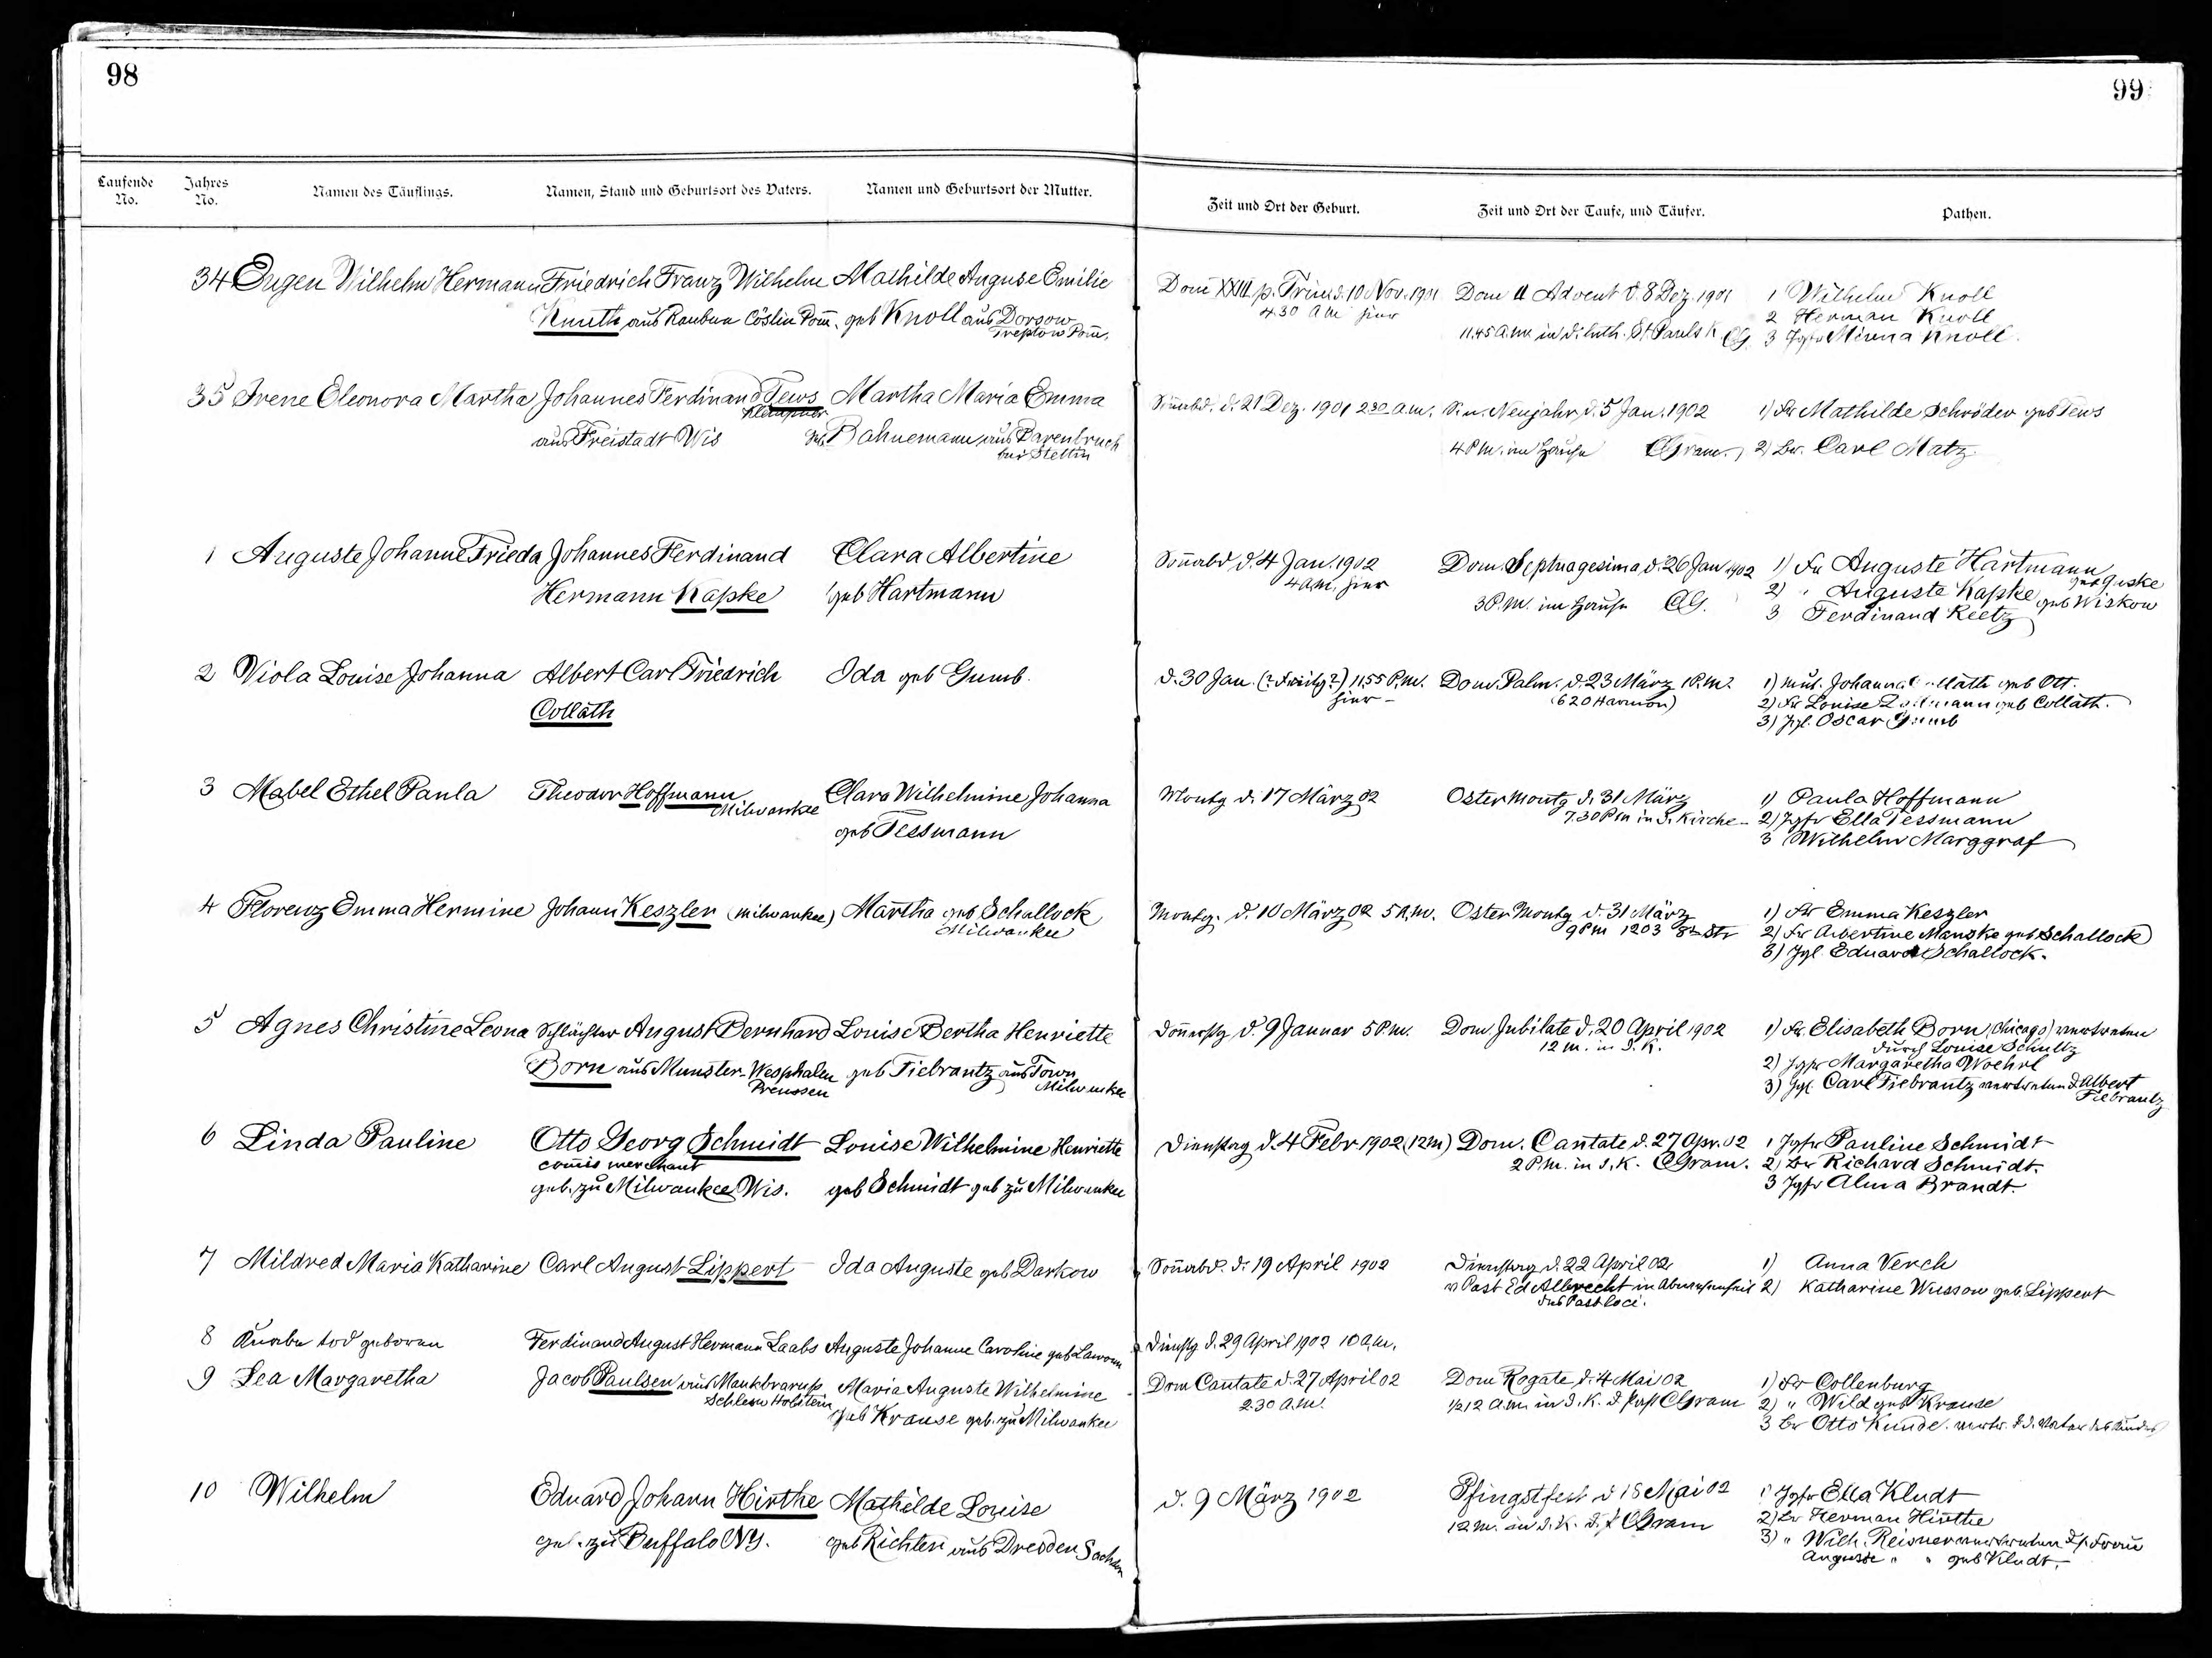 98
99
Laufende No.
Jahres No.
Namen des Täuflings.
Namen, Stand und Geburtsort des Vaters.
Namen und Geburtsort der Mutter.
Zeit und Ort der Geburt.
Zeit und Ort der Taufe, und Täufer.
Pathen.
34 Eugen Wilhelm Hermann Friedrich Franz Wilhelm Mathilde Auguse Emilie
Knuth aus Cöslin Pom̄. geb Knoll aus Dorsow
Treptow Pom̄.
Dom XXIII p. Trin d. 10 Nov. 1901
4.30 a m hier
Dom II Advent d. 8 Dez. 1901
11.45 a.m. in d. luth. St Pauls K CG.
1 Wilhelm Knoll
2 Herman Knoll
3 Jgfr Minna Knoll.
35 Irene Eleonora Martha Johannes Ferdinand Tews Martha Maria Emma
Klempner
aus Freistadt Wis geb. Bahnemann aus Darenbruch
bei Stettin
Son̄abd. d. 21 Dez. 1901 2 30 a.m.
S. n. Neujahr, d. 5 Jan. 1902
4 P.M. im Hause CGram.
1) Fr Mathilde Schröder geb Tews
2) Hr. Carl Matz.
1 Auguste Johanne Frieda Johannes Ferdinand Clara Albertine
Hermann Kapke geb Hartmann
Son̄abd d. 4 Jan. 1902
4 a.m. hier
Dom. Septuagesima d. 26 Jan 1902
3 P.M. im Hause CG.
1) Fr Auguste Hartmann
geb Guske
2) " Auguste Kapke geb Wiskow
3 Ferdinand Reetz
2 Viola Louise Johanna Albert Carl Friedrich Ida geb Gumb.
Collath
d. 30 Jan. (? Freitg ?) 11.55 P.M.
hier
Dom. Palm. d. 23 März 1 P.M.
(620 Harmon)
1) Johanna Collath geb Ott.
2) Fr Louise geb Collath.
3) Jgl. Oscar Gumb
3 Mabel Ethel Paula Theodor Hoffmann Clara Wilhelmine Johanna
Milwaukee
geb Tessmann
Montg d. 17 März 02
Ostermontg d. 31 März
7.30 P m in d. Kirche
1) Paula Hoffmann
2) Jgfr Ella Tessmann
3 Wilhelm Marggraf
4 Florenz Emma Hermine Johann Keszler (Milwaukee) Martha geb Schallock
Milwaukee
Montg. d. 10 März 02 5 A.m.
Oster Montg d. 31 März
9 P m 1203 8th Str
1) Fr Emma Keszler
2) Fr Albertine Manske geb Schallock
3) Jgl. Eduard Schallock.
5 Agnes Christine Leona Schlächter August Bernhard Louise Bertha Henriette
Born aus Munster-Wesphalen geb Fiebrantz aus Town
Preussen Milwaukee
Don̄erstg d. 9 Januar 5 P.m.
Dom Jubilate d. 20 April 1902
12 m. in d. K.
1) Fr. Elisabeth Born (Chicago) vertreten
durch Louise Schultz
2) Jgfr Margaretha Woehrl
3) Jgl. Carl Fiebrantz vertreten d Albert
Fiebrantz
6 Linda Pauline Otto Georg Schmidt Louise Wilhelmine Henriette
com̄is merchant
geb. zu Milwaukee Wis. geb Schmidt geb zu Milwaukee
Dienstag d. 4 Febr 1902 (12 M)
Dom. Cantate d. 27 Apr. 02
2 P.m. in d. K. CGram.
1 Jgfr Pauline Schmidt
2) Hr Richard Schmidt.
3 Jgfr Alma Brandt.
7 Mildred Maria Katharine Carl August Lippert Ida Auguste geb Darkow
Son̄abd. d. 19 April 1902
Dienstag d. 22 April 02
v Past Ed Albrecht in Abwesenheit
des Past loci.
1) Anna Verch
2) Katharine Wussow geb. Lippert
8 Knabe tod geboren Ferdinand August Hermann Laabs Auguste Johanne Caroline geb
Dienstg d. 29 April 1902 10 a.m.
9 Lea Margaretha Jacob Paulsen aus Maukbrarup Maria Auguste Wilhelmine
Schlesw Holstein
geb Krause geb. zu Milwaukee
Dom Cantate d. 27 April 02
2.30 a.m.
Dom Rogate d. 4 Mai 02
1/2 12 a.m. in d. K. d. Past CGram
1) Fr Collenburg
2) " Wild geb Krause
3 Hr Otto Kunde. vertr. d d. Vater des Kindes
10 Wilhelm Eduard Johann Hinthe Mathilde Louise
geb. zu Buffalo NY. geb Richter aus Dresden Sachsen
d. 9 März 1902
Pfingstfest d 18 Mai 02
12 m. in d. K. d. P CGram
1 Jgfr Ella Kludt
2) Hr Herman Hinthe
3) " Wilh. Reisner vertreten d s. Frau
Auguste " " geb Kludt.